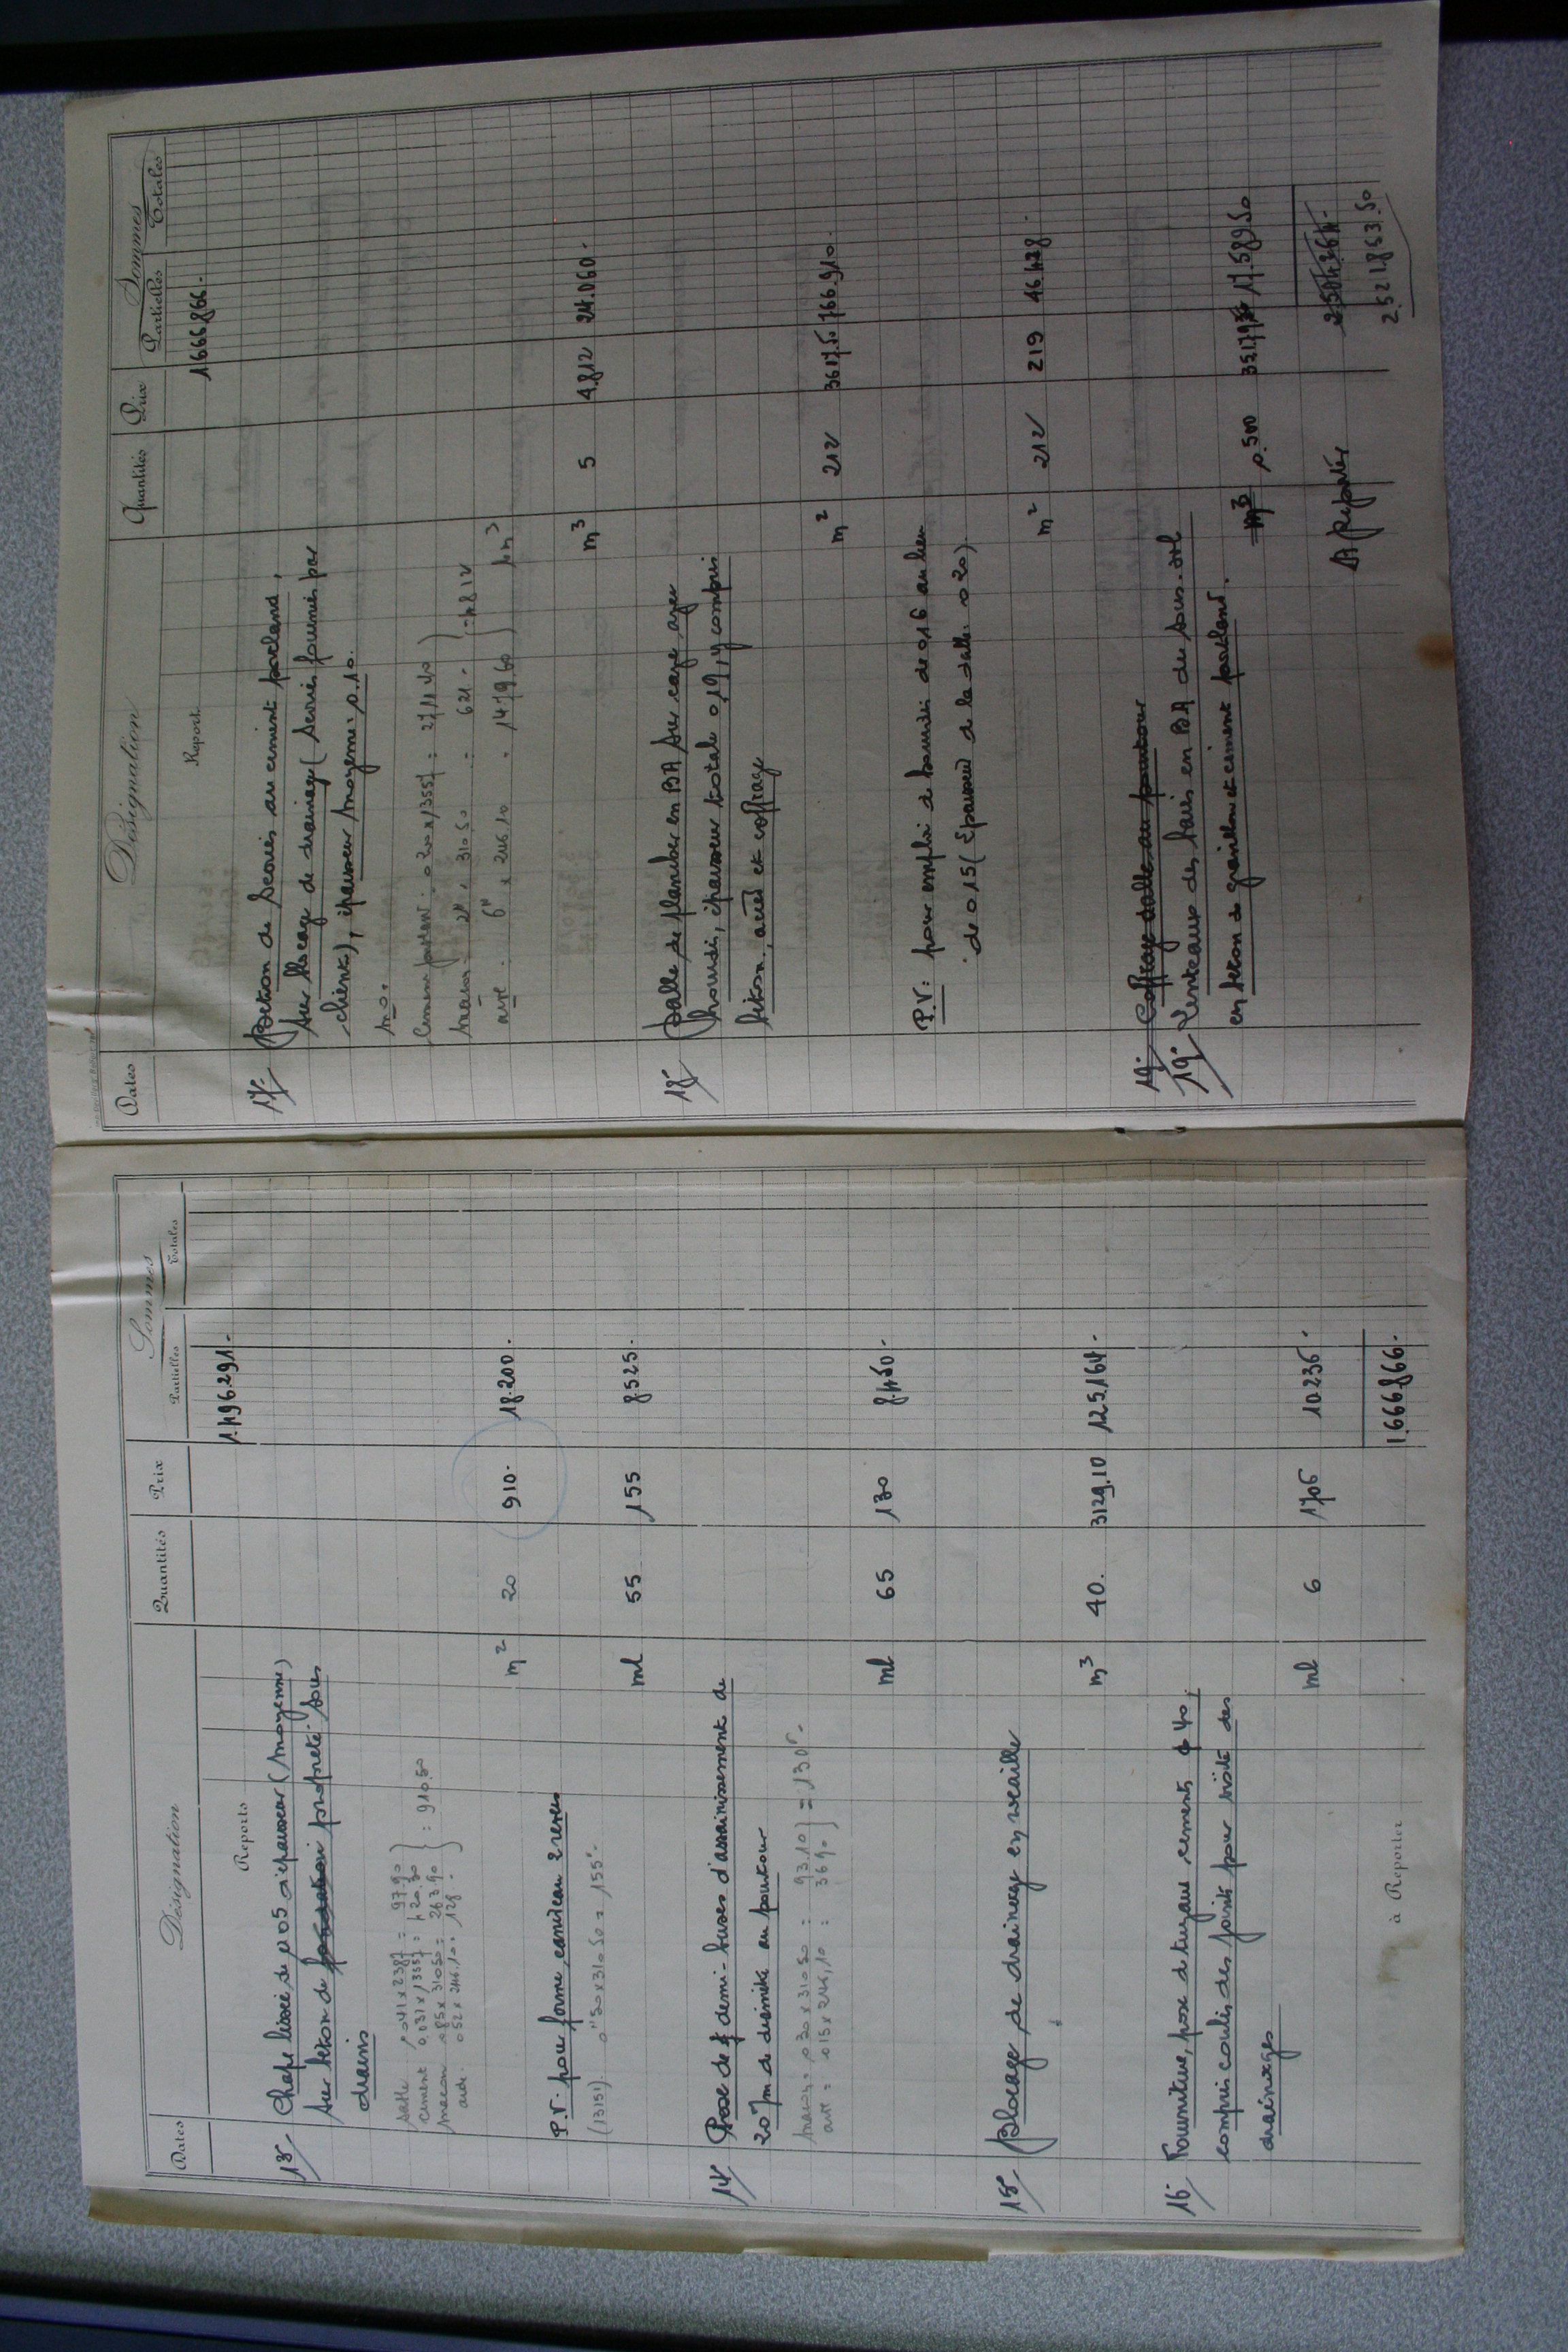 Dates Désignation Quantités Prix Sommes
Partielles Totales
Reports 1.496.291.-
13°/ Chape lissée de 0.05 d'épaisseur (moyenne)
sur béton de propreté sous
drains
sable 0.041 x 2387 = 97.90
ciment 0.031 x 1355
maçon 0.85 x 310.50 = 263.90
aide 0.52 x 246.10 = 128.-
= 910.50
m² 20 910.- 18.200.-
P.V. pour forme caniveau
(13151). 0"50 x 310.50 = 155"-
ml 55 155 8.525.-
14°/ Pose de demi-buses d'assainissement de
20 de diamètre au pourtour
maçon = 0.30 x 310.50 = 93.10
aide = 0.15 x 246.10 = 36.90
= 130"-
ml 65 130 8.450.-
15°/ Blocage de drainage en rocaille
m³ 40. 3129.10 125.164.-
16°/ Fourniture, pose de tuyaux ciment, ϕ 40,
compris coulis des joints pour visite des
drainages
ml 6 1706 10.236.-
à Reporter 1.666.866.-
Dates Désignation Quantités Prix Sommes
Partielles Totales
Report 1.666.866.-
17°/ Béton de scories au ciment portland,
sur blocage de drainage (scories fournies par
client), épaisseur moyenne: 0.10.
m.o.
Ciment portland: 0.200 x 1355 = 2711.40
maçon: 2" x 310.50 = 621.-
aide: 6" x 246.10 = 1479.60
= 4812 m³
m³ 5 4.812 24.060.-
18°/ Dalle de plancher en BA sur cave avec
hourdis, épaisseur totale 0.19, y compris
béton, acier et coffrage
m² 212 3617.50 766.910.-
P.V: pour emploi de hourdis de 0.16 au lieu
de 0.15 (épaisseur de la dalle: 0.20).
m² 212 219 46.428.-
19°- Coffrage dalle au pourtour
19°/ Linteaux des baies en BA du sous-sol
en béton de gravillon et ciment portland.
m³ 0.500 17.589.50
A Reporter 2.504.264.-
2.521.853.50